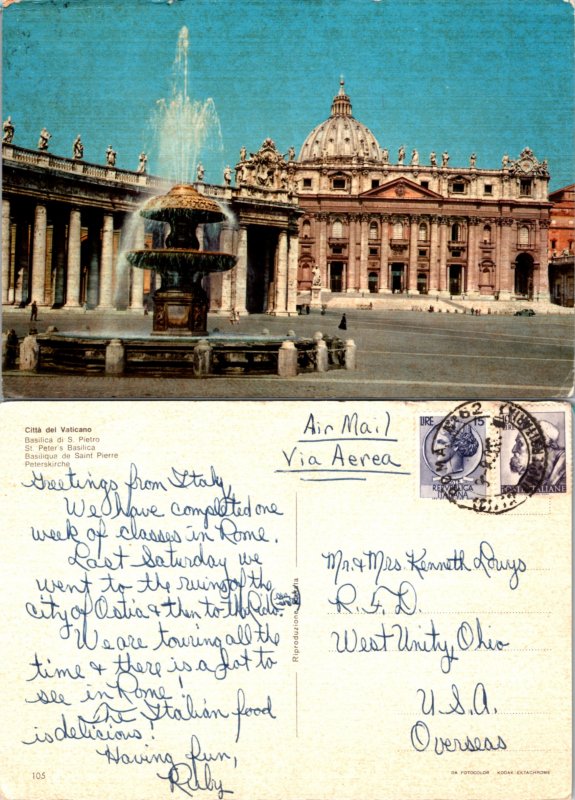 Città del Vaticano
Basilica di S. Pietro
St. Peter's Basilica
Basilique de Saint Pierre
Peterskirche
Air Mail
Via Aerea
LIRE 15
REPUBBLICA
ITALIANA
POSTE ITALIANE
ROMA
62
Greetings from Italy,
We have completed one
week of classes in Rome.
Last Saturday we
went to the ruins of the
city of Ostia & then to the Lido.
We are touring all the
time & there is a lot to
see in Rome!
The Italian food
is delicious!
Having fun,
Ruby
Mr. & Mrs. Kenneth Douys
R.F.D.
West Unity, Ohio
U.S.A.
Overseas
Riproduzione
105
DA FOTOCOLOR KODAK EKTACHROME